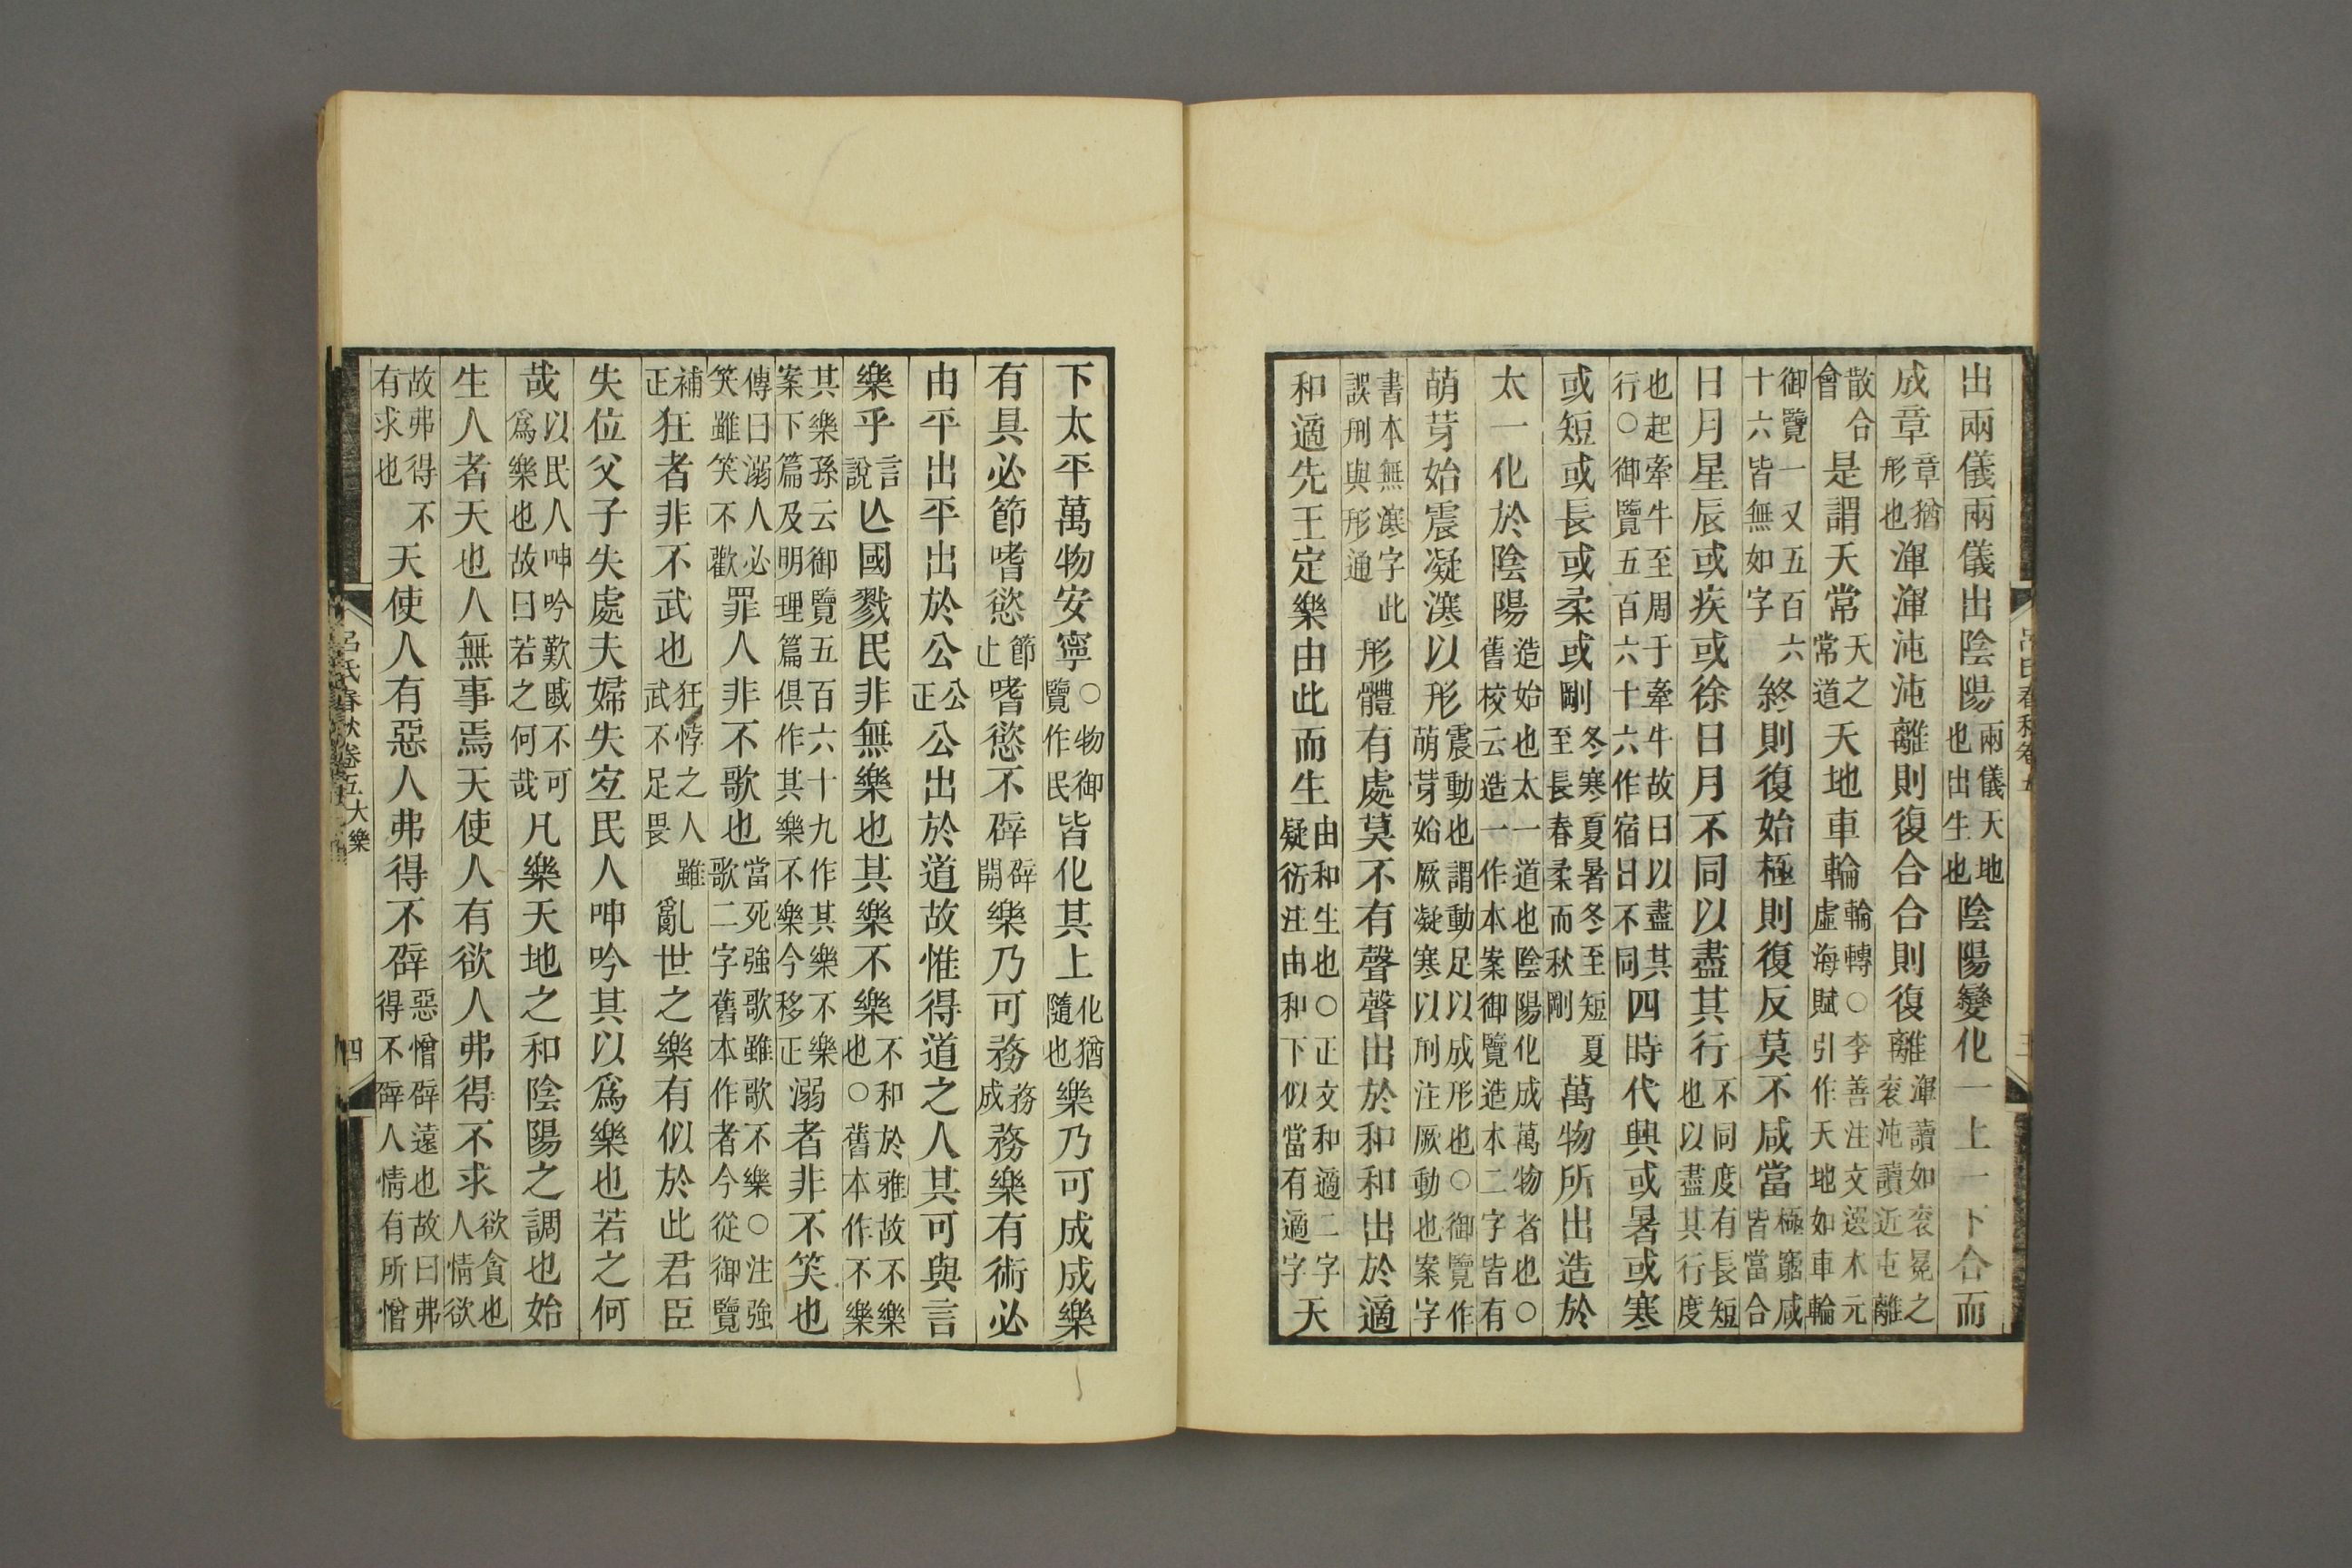 出兩儀兩儀出陰陽兩儀天地也出生也陰陽變化一上一下合而
成章章猶形也渾渾沌沌離則復合合則復離渾讀如衮冕之衮沌讀近屯離
散合會是謂天常天之常道天地車輪輪轉○李善注文選木元虛海賦引作天地如車輪
御覽一又五百六十六皆無如字終則復始極則復反莫不咸當極窮咸皆當合
日月星辰或疾或徐日月不同以盡其行不同度有長短也以盡其行度
也起牽牛至周于牽牛故日以盡其行○御覽五百六十六作宿日不同四時代興或暑或寒
或短或長或柔或剛冬寒夏暑冬至短夏至長春柔而秋剛萬物所出造於
太一化於陰陽造始也太一道也陰陽化成萬物者也○舊校云造一作本案御覽造本二字皆有
萌芽始震凝㵝以形震動也謂動足以成形也○御覽作萌芽始厥凝寒以刑注厥動也案字
書本無㵝字此誤刑與形通形體有處莫不有聲聲出於和和出於適
和適先王定樂由此而生由和生也○正文和適二字疑衍注由和下似當有適字天
呂氏春秋卷五
下太平萬物安寧○物御覽作民皆化其上化猶隨也樂乃可成成樂
有具必節嗜慾節止嗜慾不辟辟開樂乃可務務成務樂有術必
由平出平出於公公正公出於道故惟得道之人其可與言
樂乎言說亾國戮民非無樂也其樂不樂不和於雅故不樂也○舊本作不樂
其樂孫云御覽五百六十九作其樂不樂案下篇及明理篇俱作其樂不樂今移正溺者非不笑也
傳曰溺人必笑雖笑不歡罪人非不歌也當死強歌雖歌不樂○注強歌二字舊本作者今從御覽
補正狂者非不武也狂悖之人雖武不足畏亂世之樂有似於此君臣
失位父子失處夫婦失宐民人呻吟其以爲樂也若之何
哉以民人呻吟歎戚不可爲樂也故曰若之何哉凡樂天地之和陰陽之調也始
生人者天也人無事焉天使人有欲人弗得不求欲貪也人情欲
故弗得不有求也天使人有惡人弗得不辟惡憎辟遠也故曰弗得不辟人情有所憎
呂氏春秋卷五大樂
四